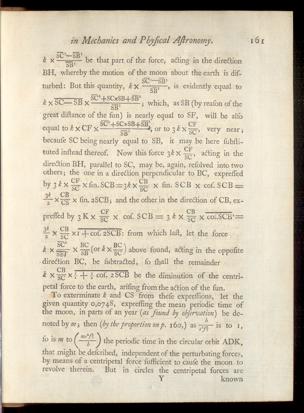 in Mechanics and Phyſical Aſtronomy. 161
k × (SC³—SB³)/SB³ be that part of the force, acting in the direction
BH, whereby the motion of the moon about the earth is diſ-
turbed: But this quantity, k × (SC³—SB³)/SB³, is evidently equal to
k × SC—SB × (SC²+SC×SB+SB²)/SB³; which, as SB (by reaſon of the
great diſtance of the ſun) is nearly equal to SF, will be alſo
equal to k × CF × (SC²+SC×SB+SB²)/SB³, or to 3 k × CF/SC, very near;
becauſe SC being nearly equal to SB, it may be here ſubſti-
tuted inſtead thereof. Now this force 3k × CF/SC, acting in the
direction BH, parallel to SC, may be, again, reſolved into two
others; the one in a direction perpendicular to BC, expreſſed
by 3 k × CF/SC × ſin. SCB = 3k × CB/SC × ſin. SCB × coſ. SCB =
3k/2 × CB/SC × ſin. 2SCB; and the other in the direction of CB, ex-
preſſed by 3 K × CF/SC × coſ. SCB = 3 k × CB/SC × coſ.SCB² =
3k/2 × CB/SC × 1 + coſ. 2SCB: from which laſt, let the force
k × SC³/SB³ × BC/SB (or k × BC/SC) above found, acting in the oppoſite
direction BC, be ſubtracted, ſo ſhall the remainder
k × CB/SC × ½ + ½ coſ. 2SCB be the diminution of the centri-
petal force to the earth, ariſing from the action of the ſun.
To exterminate k and CS from theſe expreſſions, let the
given quantity 0,0748, expreſſing the mean periodic time of
the moon, in parts of an year (as found by obſervation) be de-
noted by m; then (by the proportion in p. 160,) as is to 1,
ſo is m to the periodic time in the circular orbit ADK,
that might be deſcribed, independent of the perturbating forces,
by means of a centripetal force ſufficient to cauſe the moon to
revolve therein. But in circles the centripetal forces are
Y known